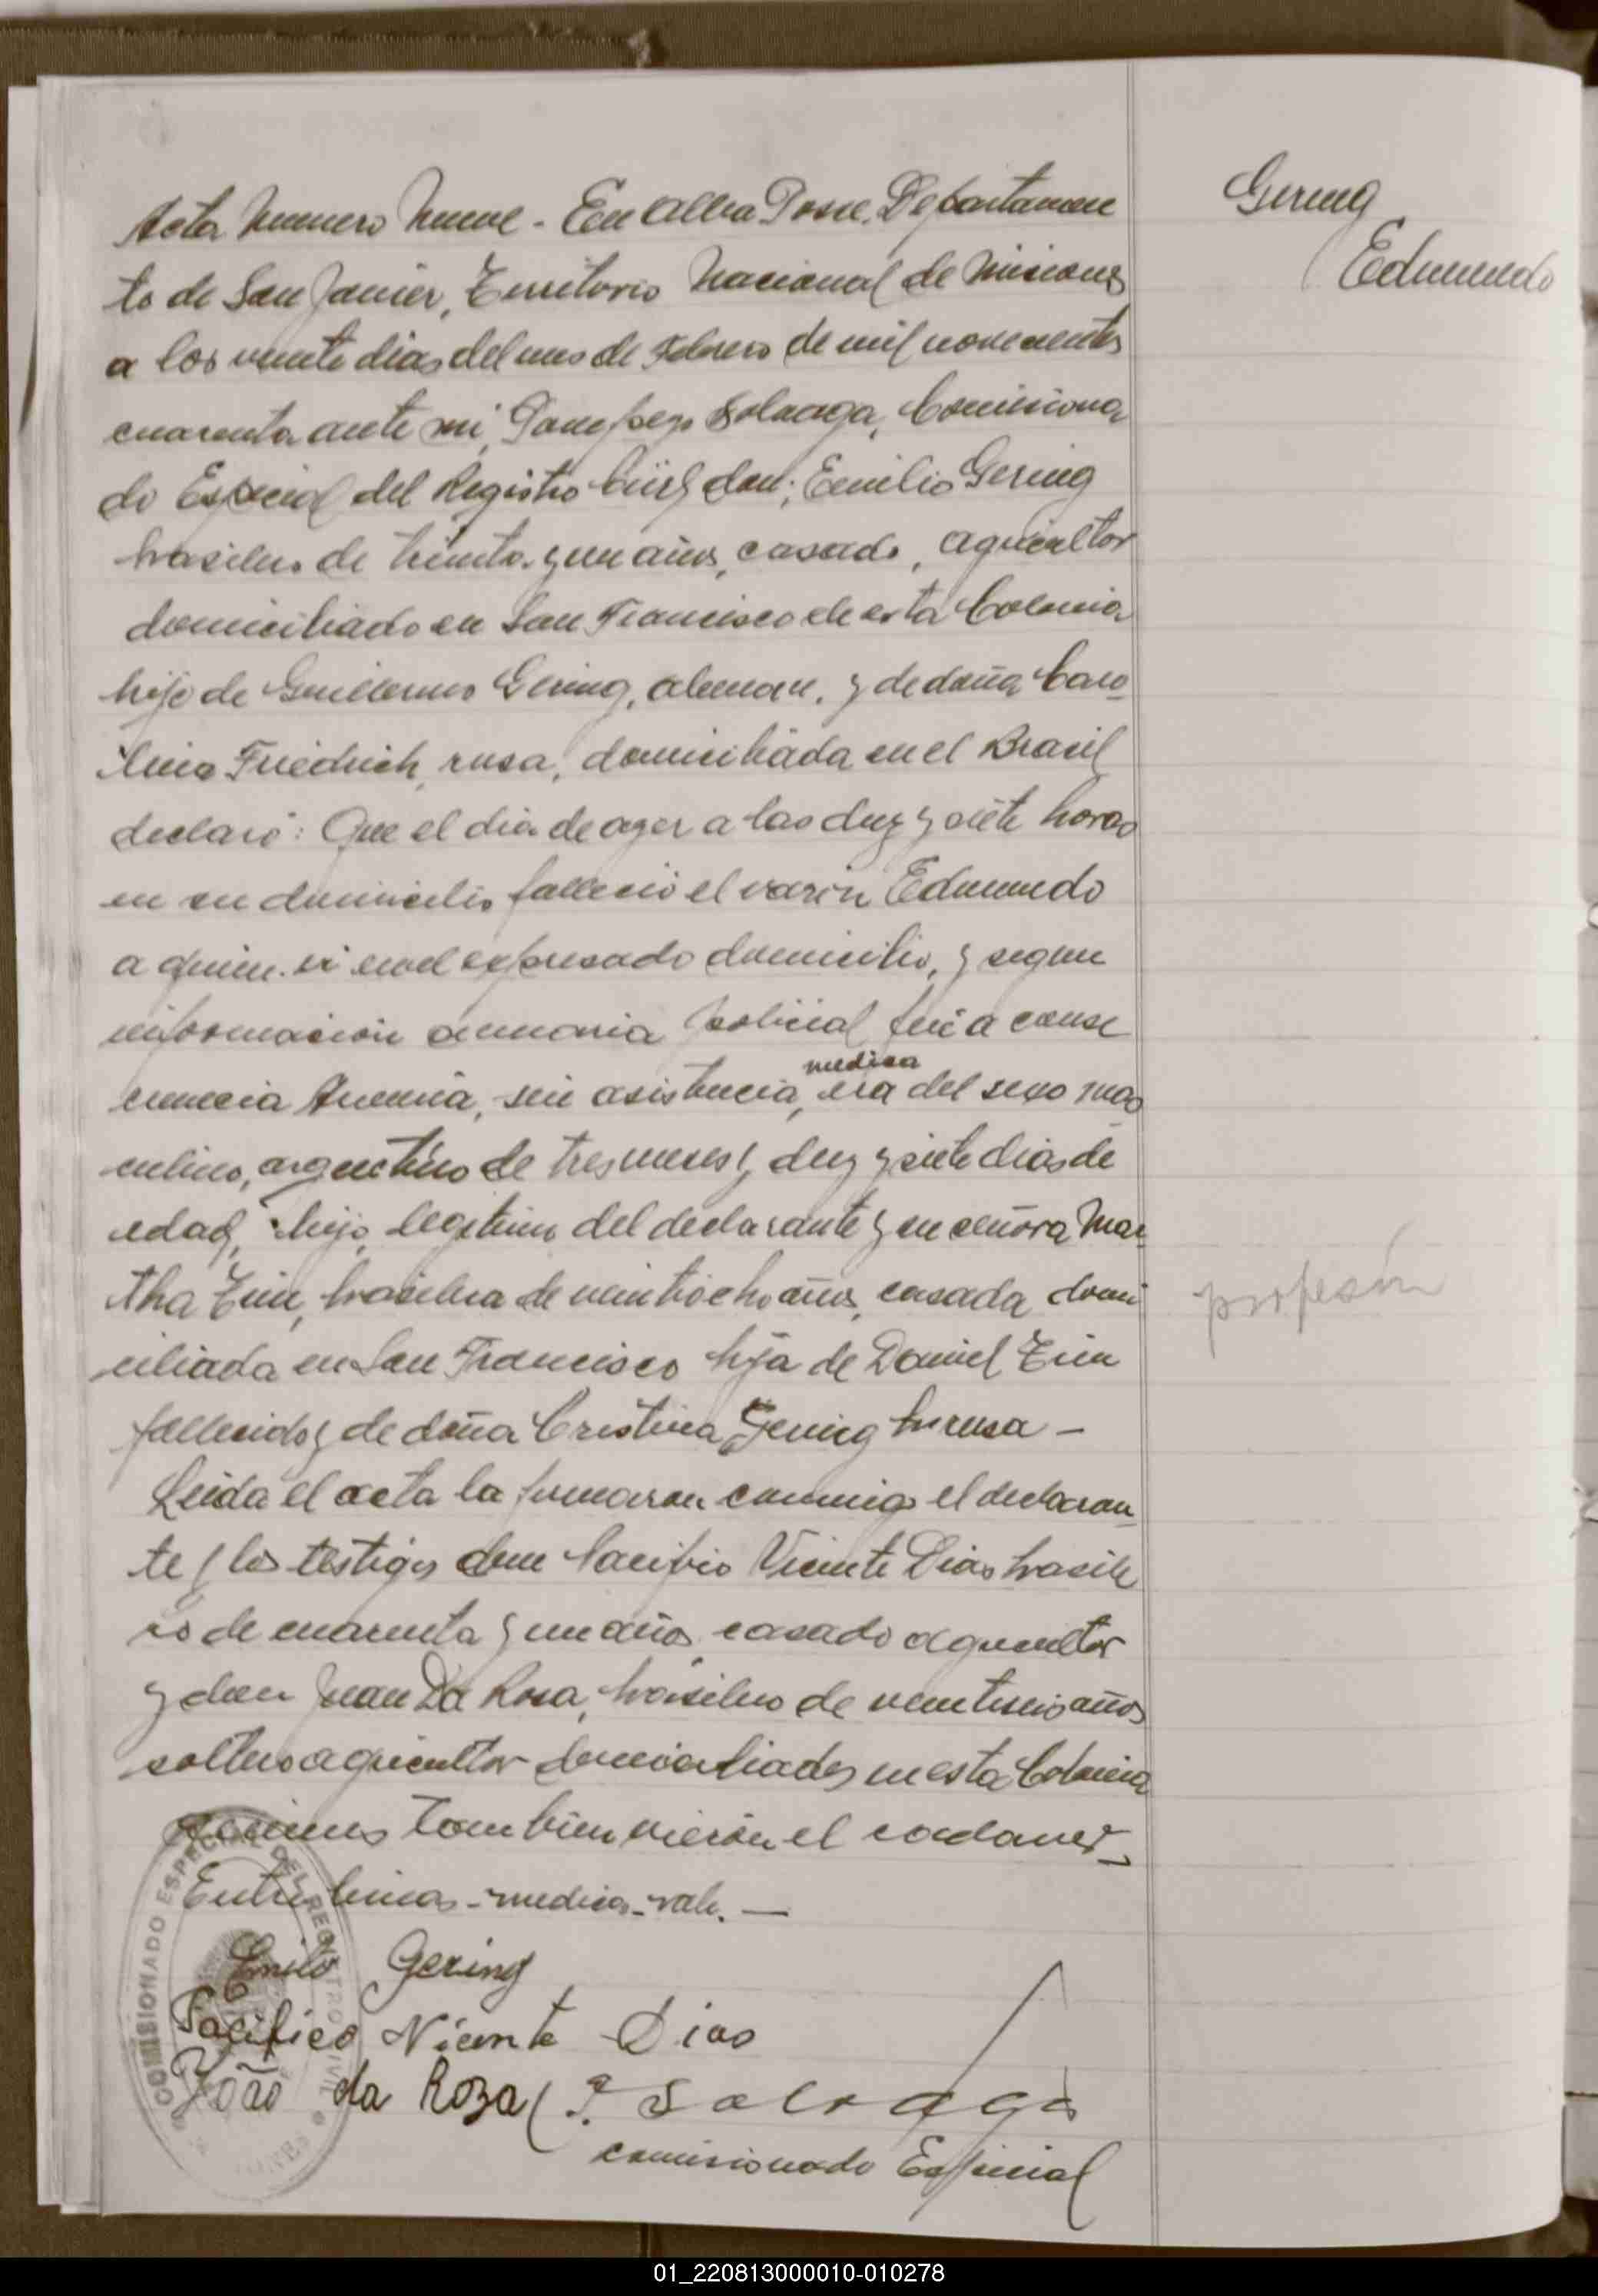 Acta Numero Nueve - En Alba Posse, Departamen
to de San Javier, Territorio Nacional de Misiones
a los veinte dias del mes de Febrero de mil novecientos
cuarenta ante mi, Solaaga, Comisiona
do Especial del Registro Civil don; Emilio Gering
brasilero de treinta y un años, casado, agricultor
domiciliado en San Francisco de esta Colonia
hijo de Guillermo Gering, aleman, y de doña Caro
lina Friedrich, rusa, domiciliada en el Brasil
declaró: Que el dia de ayer a las diez y siete horas
en su domicilio falleció el varón Edmundo
a quien vi en el expresado domicilio, y segun
información sumaria policial fué a conse
cuencia Anemia, sin asistencia, medica era del sexo mas
culino, argentino de tres meses y diez y siete dias de
edad, hijo legitimo del declarante y su señora Mar
tha Zin, brasilera de veintiocho años, casada domi
ciliada en San Francisco hija de Daniel Zin
fallecido y de doña Cristina Gering rusa -
Leida el acta la firmaron conmigo el declaran
te y los testigos don Pacifico Vicente Dias brasile
ro de cuarenta y un años casado agricultor
y don Juan Da Rosa, brasilero de veintiseis años
soltero agricultor domiciliados en esta Colonia
quienes tambien vieron el cadaver_
Entre lineas - medica - vale. —
Emilio Gering
Pacifico Vicente Dias
João da Roza P. Solaaga
comisionado Especial
COMISIONADO ESPECIAL DEL REGISTRO CIVIL
Gering
Edmundo
profesión
01_220813000010-010278